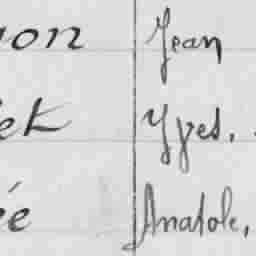 non Jean
et Yves.
ée Anatole,